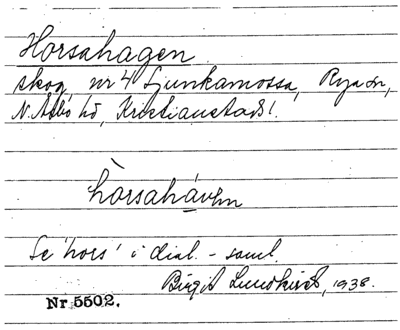 Horsahagen
skog, nr 4 Ljunkamossa, Rya sn,
N. Åsbo hd, Kristianstads l.
hòrsahávn
Se 'hors' i dial. - saml.
Birgit Lundkvist, 1938.
Nr 5502.